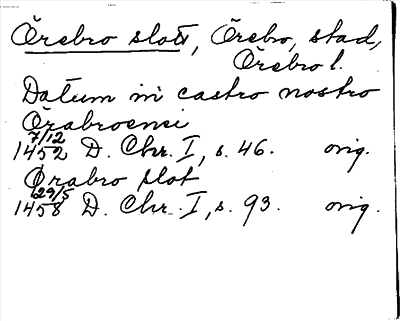 Örebro slott, Örebro, stad,
Örebro l.
Datum in castro nostro
Örabroensi
7/12
1452 D. Chr. I, s. 46. orig.
Ørabro slot
29/5
1458 D. Chr. I, s. 93. orig.